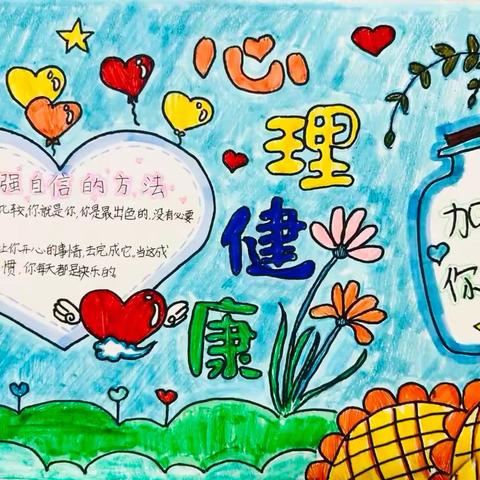 心理健康
强自信的方法
比较,你就是你,你是最出色的,没有必要
让你开心的事情,去完成它,当这成
惯,你每天都是快乐的
加
你